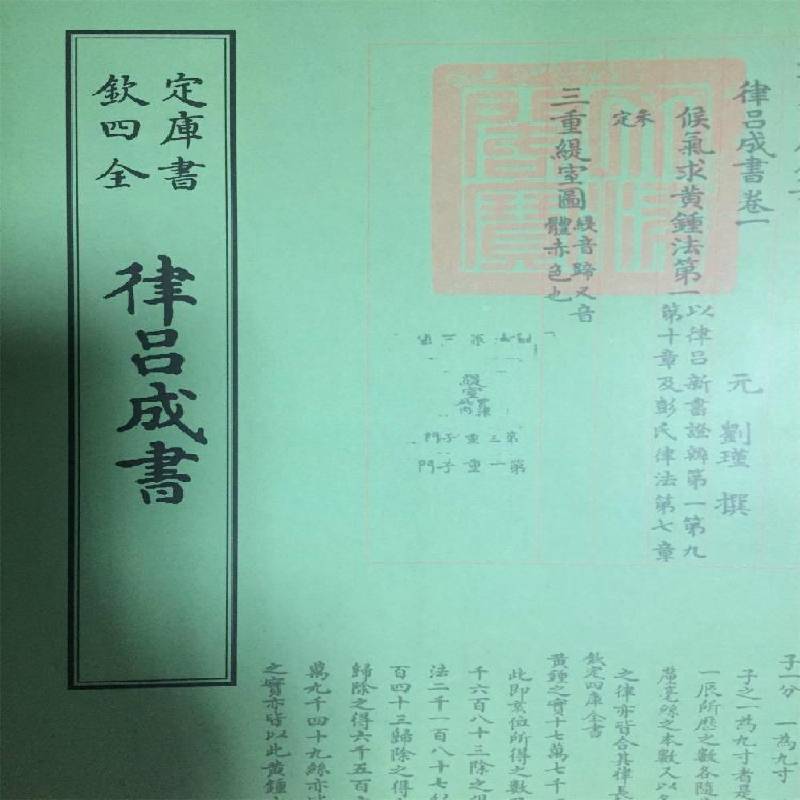 欽定四庫全書
律呂成書
律呂成書卷一
元 劉瑾 撰
候氣求黃鍾法第一以律呂新書證辨第一第九第十章及彭氏律法第七章
未定
三重緹室圖緹音歸又音體赤色也
緹室
第三重子門
第一重子門
子一分 一為九寸
子之一為九寸者是
一辰所歷之數各隨
釐毫絲之本數又以
之律亦皆合其律長
欽定四庫全書
黃鍾之實十七萬七千
此即亥位所得之數
千六百八十三除之得
法二千一百八十七
百四十三歸除之得
歸除之得六千五百
萬九千四十九絲亦
之實亦皆以此黃鍾